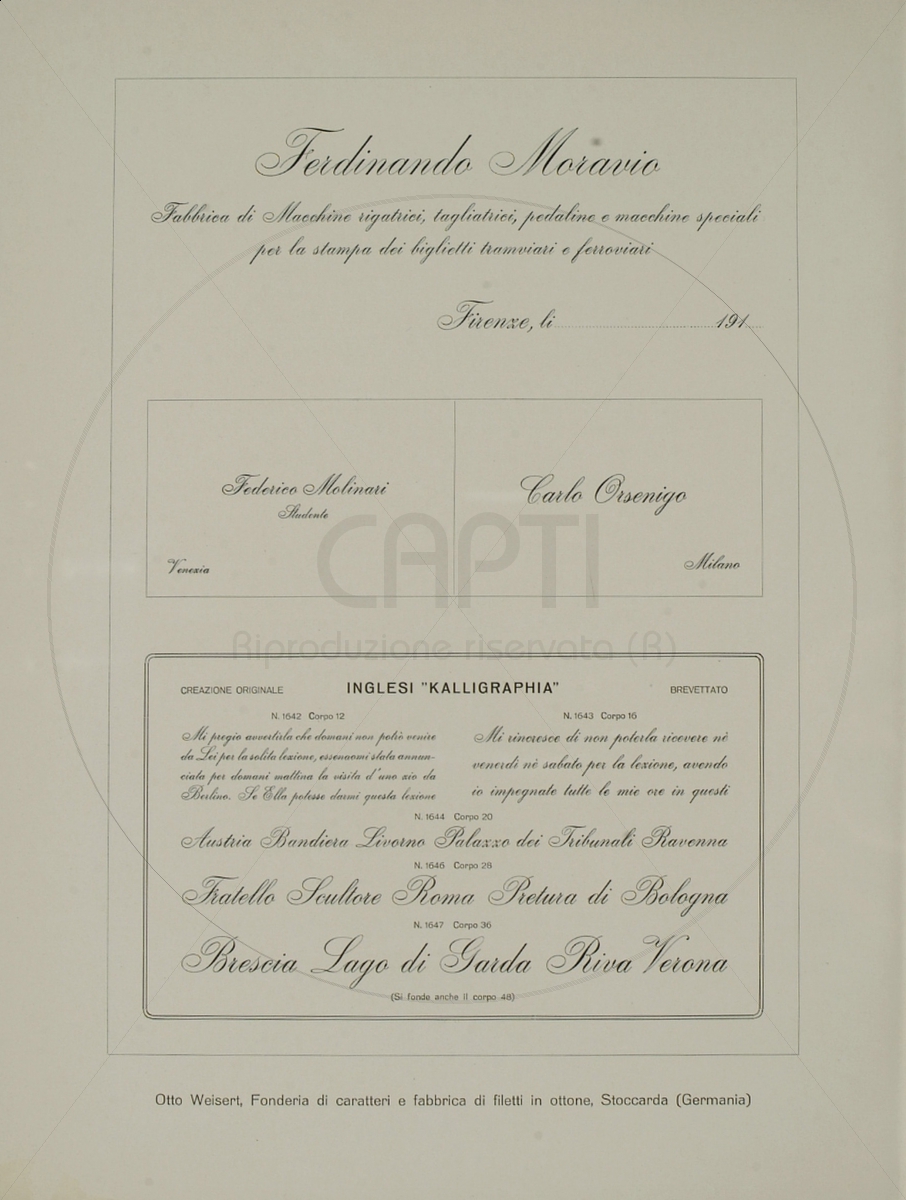 Ferdinando Moravio
Fabbrica di Macchine rigatrici, tagliatrici, pedaline e macchine speciali
per la stampa dei biglietti tramviari e ferroviari
Firenze, li ........................................ 191....
Federico Molinari
Studente
Venezia
Carlo Orsenigo
Milano
CAPTI
Riproduzione riservata (R)
CREAZIONE ORIGINALE INGLESI "KALLIGRAPHIA" BREVETTATO
N. 1642 Corpo 12
Mi pregio avvertirla che domani non potrò venire
da Lei per la solita lezione, essenaomi stata annun-
ciata per domani mattina la visita d'uno zio da
Berlino. Se Ella potesse darmi questa lezione
N. 1643 Corpo 16
Mi rincresce di non poterla ricevere nè
venerdì nè sabato per la lezione, avendo
io impegnate tutte le mie ore in questi
N. 1644 Corpo 20
Austria Bandiera Livorno Palazzo dei Tribunali Ravenna
N. 1646 Corpo 28
Fratello Scultore Roma Pretura di Bologna
N. 1647 Corpo 36
Brescia Lago di Garda Riva Verona
(Si fonde anche il corpo 48)
Otto Weisert, Fonderia di caratteri e fabbrica di filetti in ottone, Stoccarda (Germania)